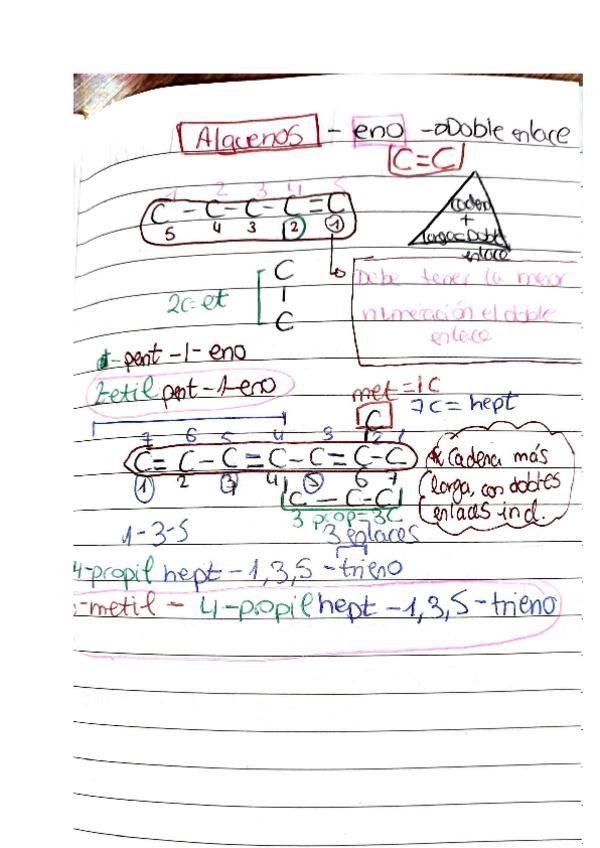 Alquenos - eno → Doble enlace
C=C
1 2 3 4 5
C - C - C - C = C
5 4 3 2 1
Cadena
+
larga = Doble
enlace
C
2C = et
C
Debe tener la menor
numeración el doble
enlace
-pent-1-eno
2-etil pent-1-eno
met = 1C
7C = hept
C
7 6 5 4 3 2 1
C = C - C = C - C = C - C
1 2 3 4 5 6 7
C - C - C
3 prop = 3C
* Cadena más
larga, con dobles
enlaces incl.
1-3-5
3 enlaces
4-propil hept-1,3,5-trieno
-metil - 4-propil hept-1,3,5-trieno